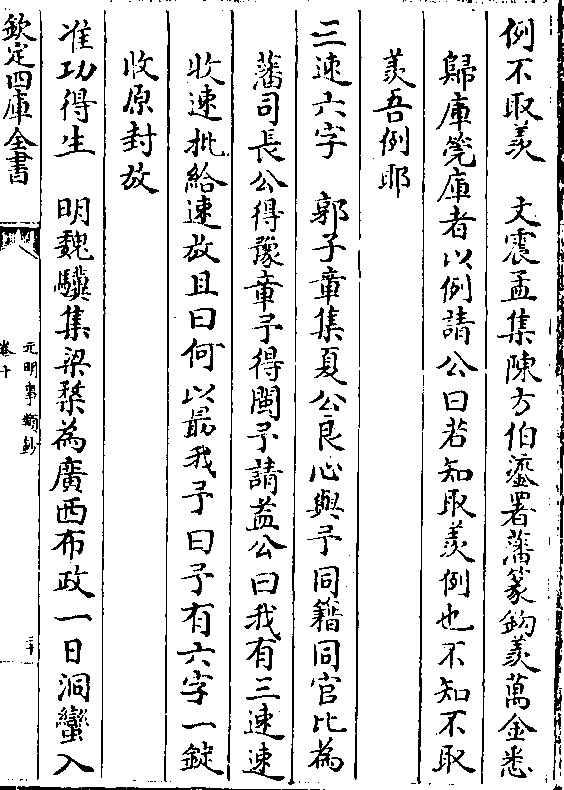 例不取羨　文震孟集陳方伯鎏署藩篆鈎羨萬金悉
歸庫筦庫者以例請公曰若知取羨例也不知不取
羨吾例耶
三速六字　郭子章集夏公良心與予同籍同官比為
藩司長公得豫章予得閩予請益公曰我有三速速
收速批給速放且曰何以最我予曰予有六字一錠
收原封放
准功得生　明魏驥集梁楘為廣西布政一日洞蠻入
欽定四庫全書
元明事類鈔
卷十